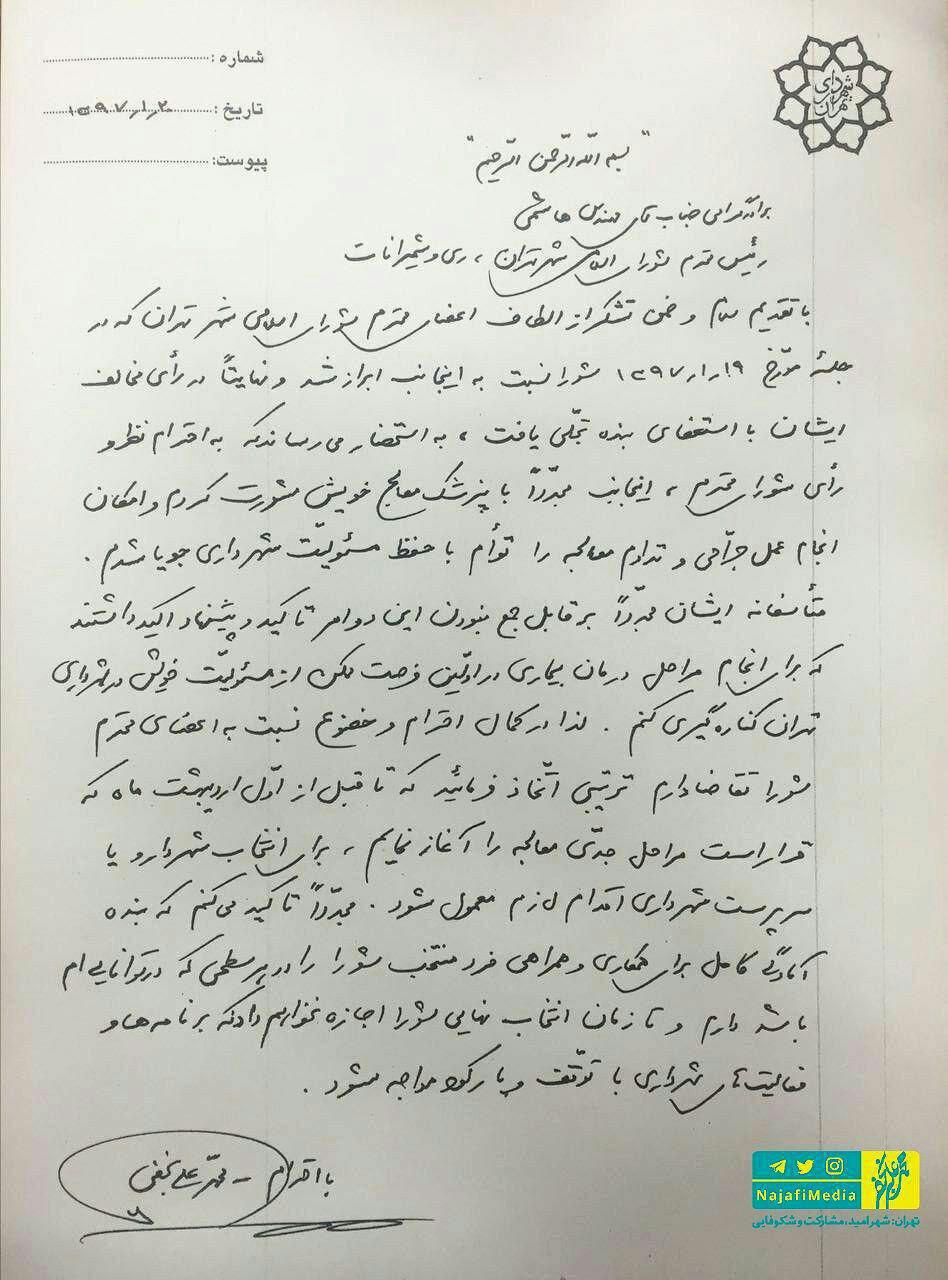 شماره :
تاریخ : ۱۳۹۷/۱/۲۰
پیوست:
شهرداری تهران
"بسم الله الرّحمن الرّحیم"
برادر گرامی جناب آقای مهندس هاشمی
رئیس محترم شورای اسلامی شهر تهران، ری و شمیرانات
با تقدیم سلام و ضمن تشکر از الطاف اعضای محترم شورای اسلامی شهر تهران که در
جلسهٔ مورّخ ۱۳۹۷/۱/۱۹ شورا نسبت به اینجانب ابراز شد و نهایتاً در رأی مخالف
ایشان با استعفای بنده تجلّی یافت، به استحضار می‌رساند که به احترام نظر و
رأی شورای محترم، اینجانب مجدّداً با پزشک معالج خویش مشورت کردم و امکان
انجام عمل جرّاحی و تداوم معالجه را توأم با حفظ مسئولیّت شهرداری جویا شدم.
متأسفانه ایشان مجدّداً بر قابل جمع نبودن این دو امر تاکید و پیشنهاد اکید داشتند
که برای انجام مراحل درمان بیماری در اوّلین فرصت ممکن از مسئولیّت خویش در شهرداری
تهران کناره‌گیری کنم. لذا در کمال احترام و خضوع نسبت به اعضای محترم
شورا تقاضا دارم ترتیبی اتّخاذ فرمائید که تا قبل از اوّل اردیبهشت ماه که
قرار است مراحل جدّی معالجه را آغاز نمایم، برای انتخاب شهردار و یا
سرپرست شهرداری اقدام لازم معمول شود. مجدّداً تاکید می‌کنم که بنده
آمادگی کامل برای همکاری و همراهی فرد منتخب شورا را در هر سطحی که در توانایی‌ام
باشد دارم و تا زمان انتخاب نهایی شورا اجازه نخواهم داد که برنامه‌ها و
فعالیت‌های شهرداری با توقّف و یا رکود مواجه شود.
با احترام - محمّد علی نجفی
NajafiMedia
تهران: شهر امید، مشارکت و شکوفایی